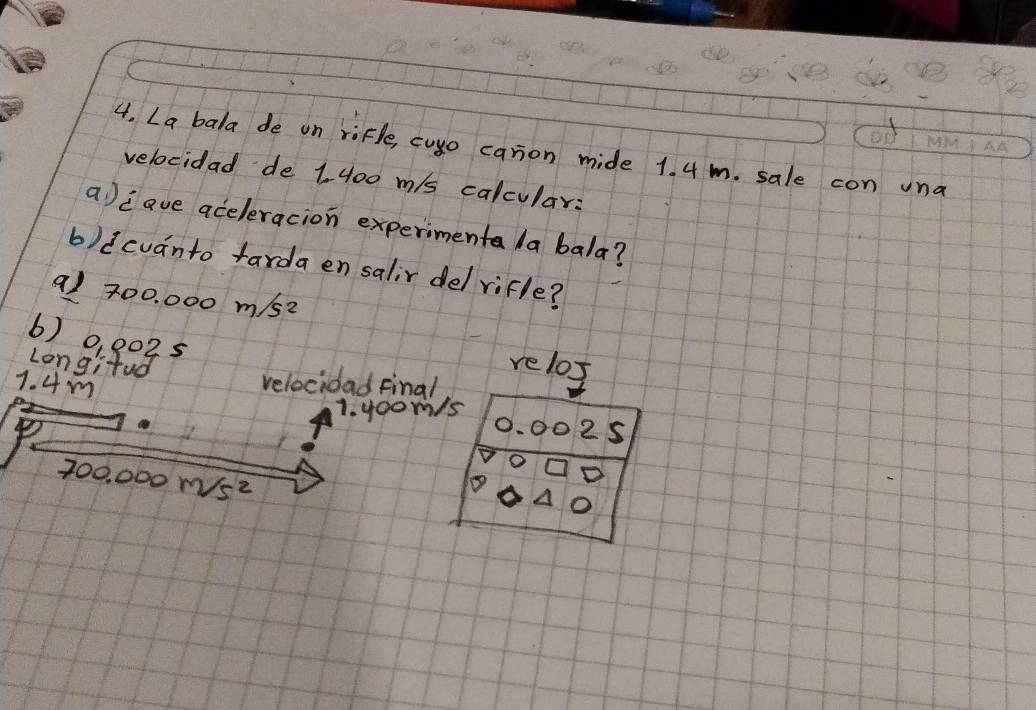 DD | MM | AA
4. La bala de un rifle, cuyo cañon mide 1.4 m. sale con una
velocidad de 1.400 m/s calcular:
a) ¿ave aceleracion experimenta la bala?
b) ¿cuánto tarda en salir del rifle?
a) 700.000 m/s²
b) 0,002 s
Longitud
1.4 m
velocidad Final
1.400 m/s
700.000 m/s²
reloj
0.002 S